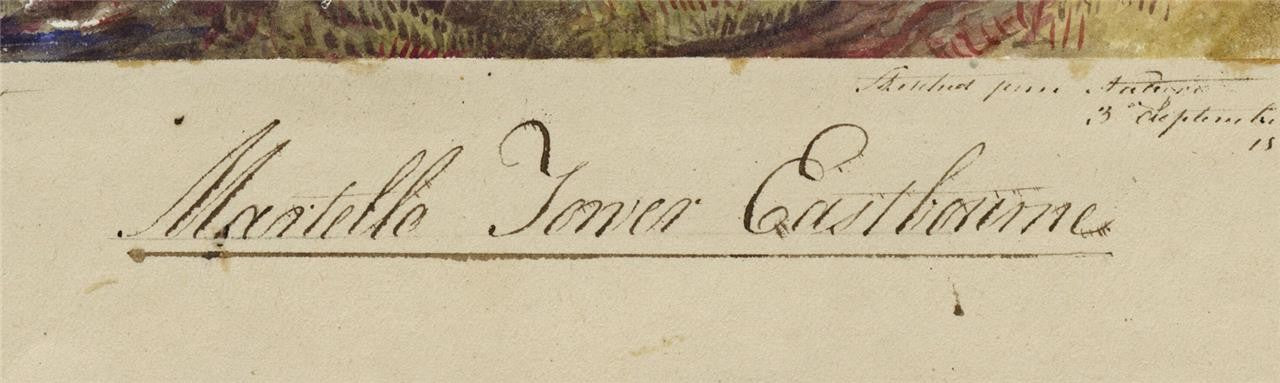 Sketched from Nature
3d Septembe
18
Martello Tower Eastbourne